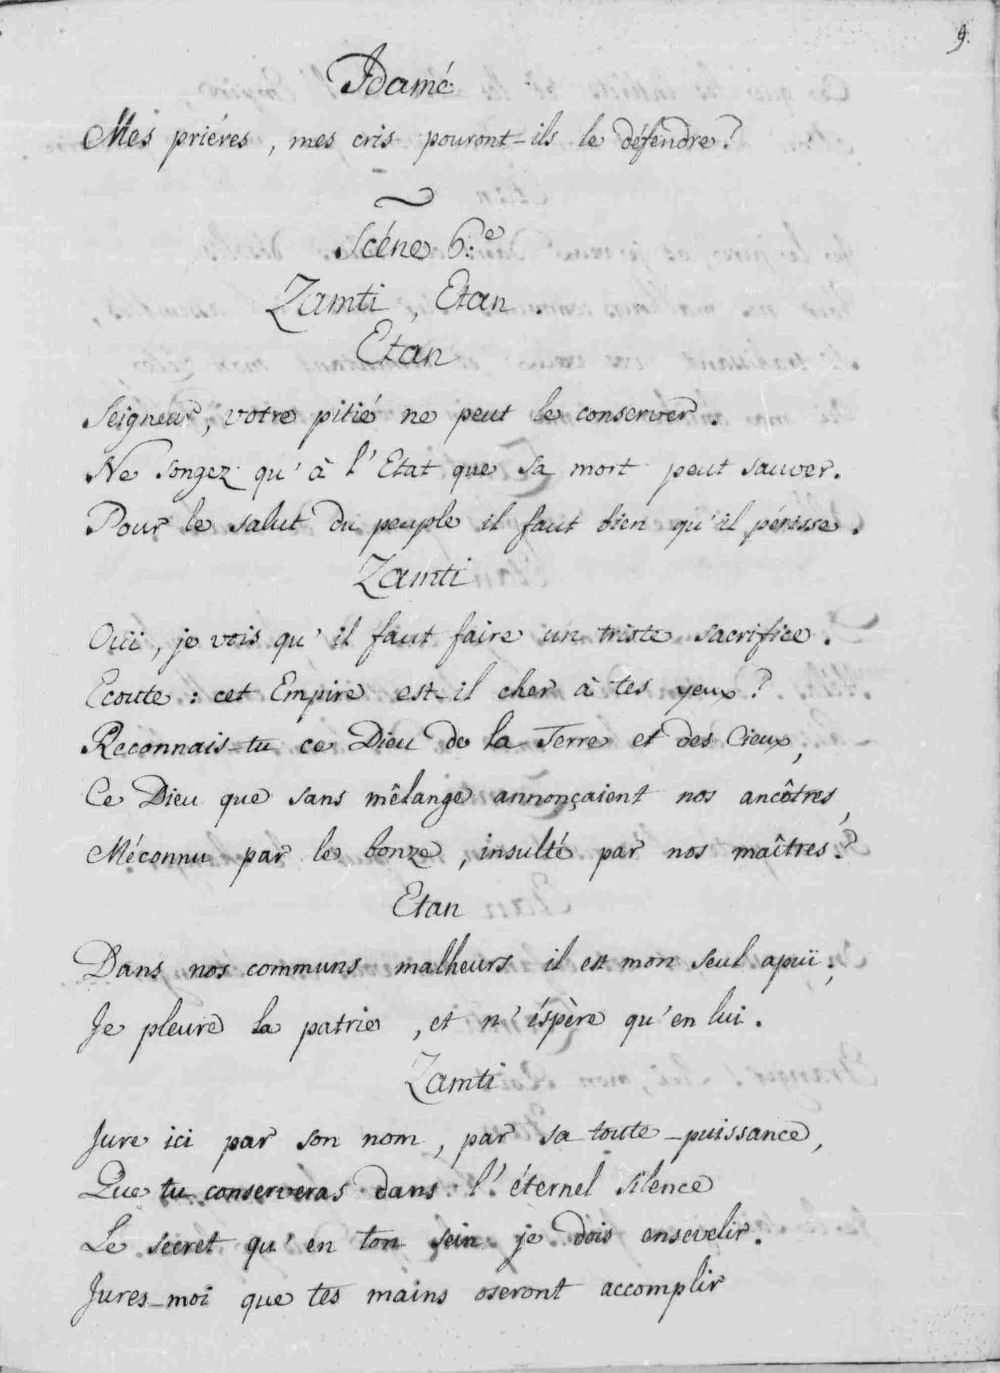 9.
Idamé
Mes priéres, mes cris pouront-ils le défendre?
Scéne 6.e
Zamti, Etan.
Etan
Seigneur, votre pitié ne peut le conserver.
Ne songez qu'à l'Etat que sa mort peut sauver.
Pour le salut du peuple il faut bien qu'il périsse.
Zamti
Oüi, je vois qu'il faut faire un triste sacrifice.
Ecoute: cet Empire est-il cher à tes yeux?
Reconnais-tu ce Dieu de la Terre et des Cieux,
Ce Dieu que sans mêlange annonçaient nos ancêtres,
Méconnu par le bonze, insulté par nos maîtres?
Etan
Dans nos communs malheurs il est mon seul apüi;
Je pleure la patrie, et n'éspère qu'en lui.
Zamti
Jure ici par son nom, par sa toute-puissance,
Que tu conserveras dans l'éternel silence
Le secret qu'en ton sein je dois ensevelir.
Jures-moi que tes mains oseront accomplir